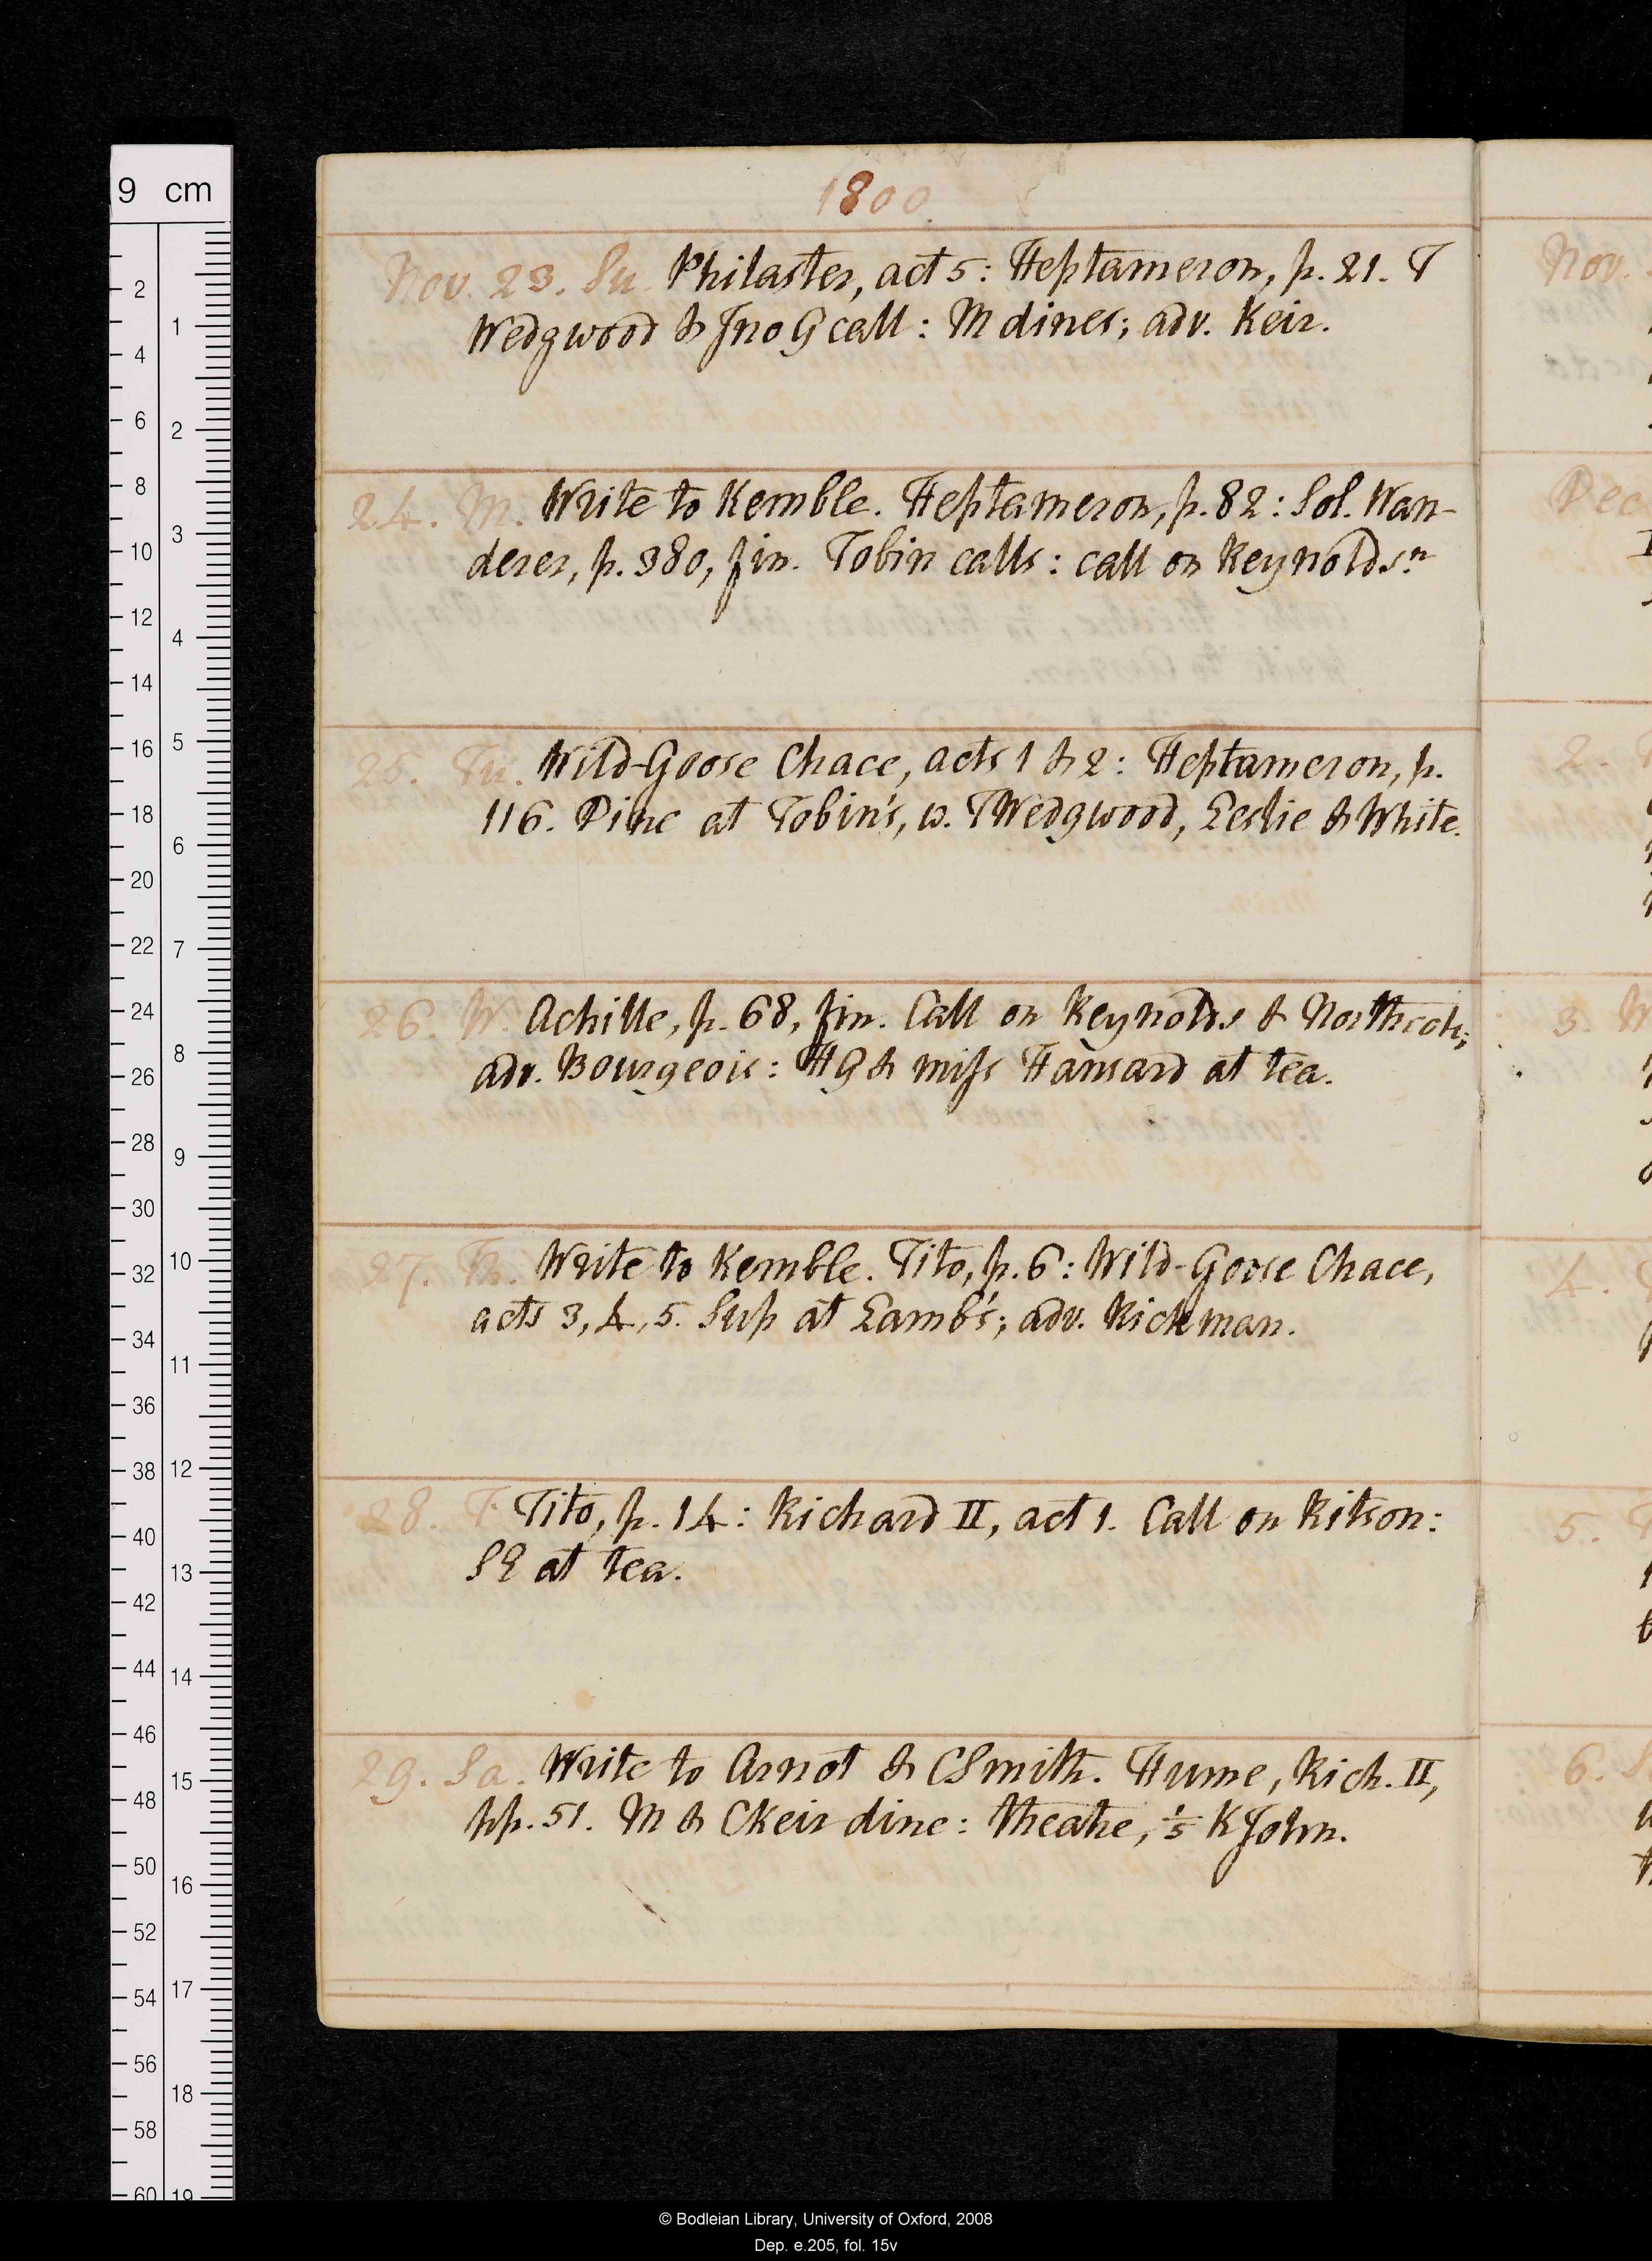 1800.
Nov. 23. Su. Philaster, act 5: Heptameron, p. 21. T
Wedgwood & Jno G call: M dines; adv. Keir.
24. M. Write to Kemble. Heptameron, p. 82: Sol. Wan-
derer, p. 380, fin. Tobin calls: call on Reynolds.n
25. Tu. Wild-Goose Chace, acts 1 & 2: Heptameron, p.
116. Dine at Tobin's, w. TWedgwood, Leslie & White.
26. W. Achille, p. 68, fin. Call on Reynolds & Northcote;
adv. Bourgeois: HG & miss Hansard at tea.
27. Th. Write to Kemble. Tito, p. 6: Wild-Goose Chace,
acts 3, 4, 5. Sup at Lamb's; adv. Rickman.
28. F. Tito, p. 14: Richard II, act 1. Call on Ritson:
SE at tea.
29. Sa. Write to Arnot & CSmith. Hume, Rich. II,
pp. 51. M & CKeir dine: theatre, 1/5 KJohn.
Nov.
Dec
2.
3.
4.
5.
6.
9 cm
2 4 6 8 10 12 14 16 18 20 22 24 26 28 30 32 34 36 38 40 42 44 46 48 50 52 54 56 58 60
1 2 3 4 5 6 7 8 9 10 11 12 13 14 15 16 17 18 19
© Bodleian Library, University of Oxford, 2008
Dep. e.205, fol. 15v